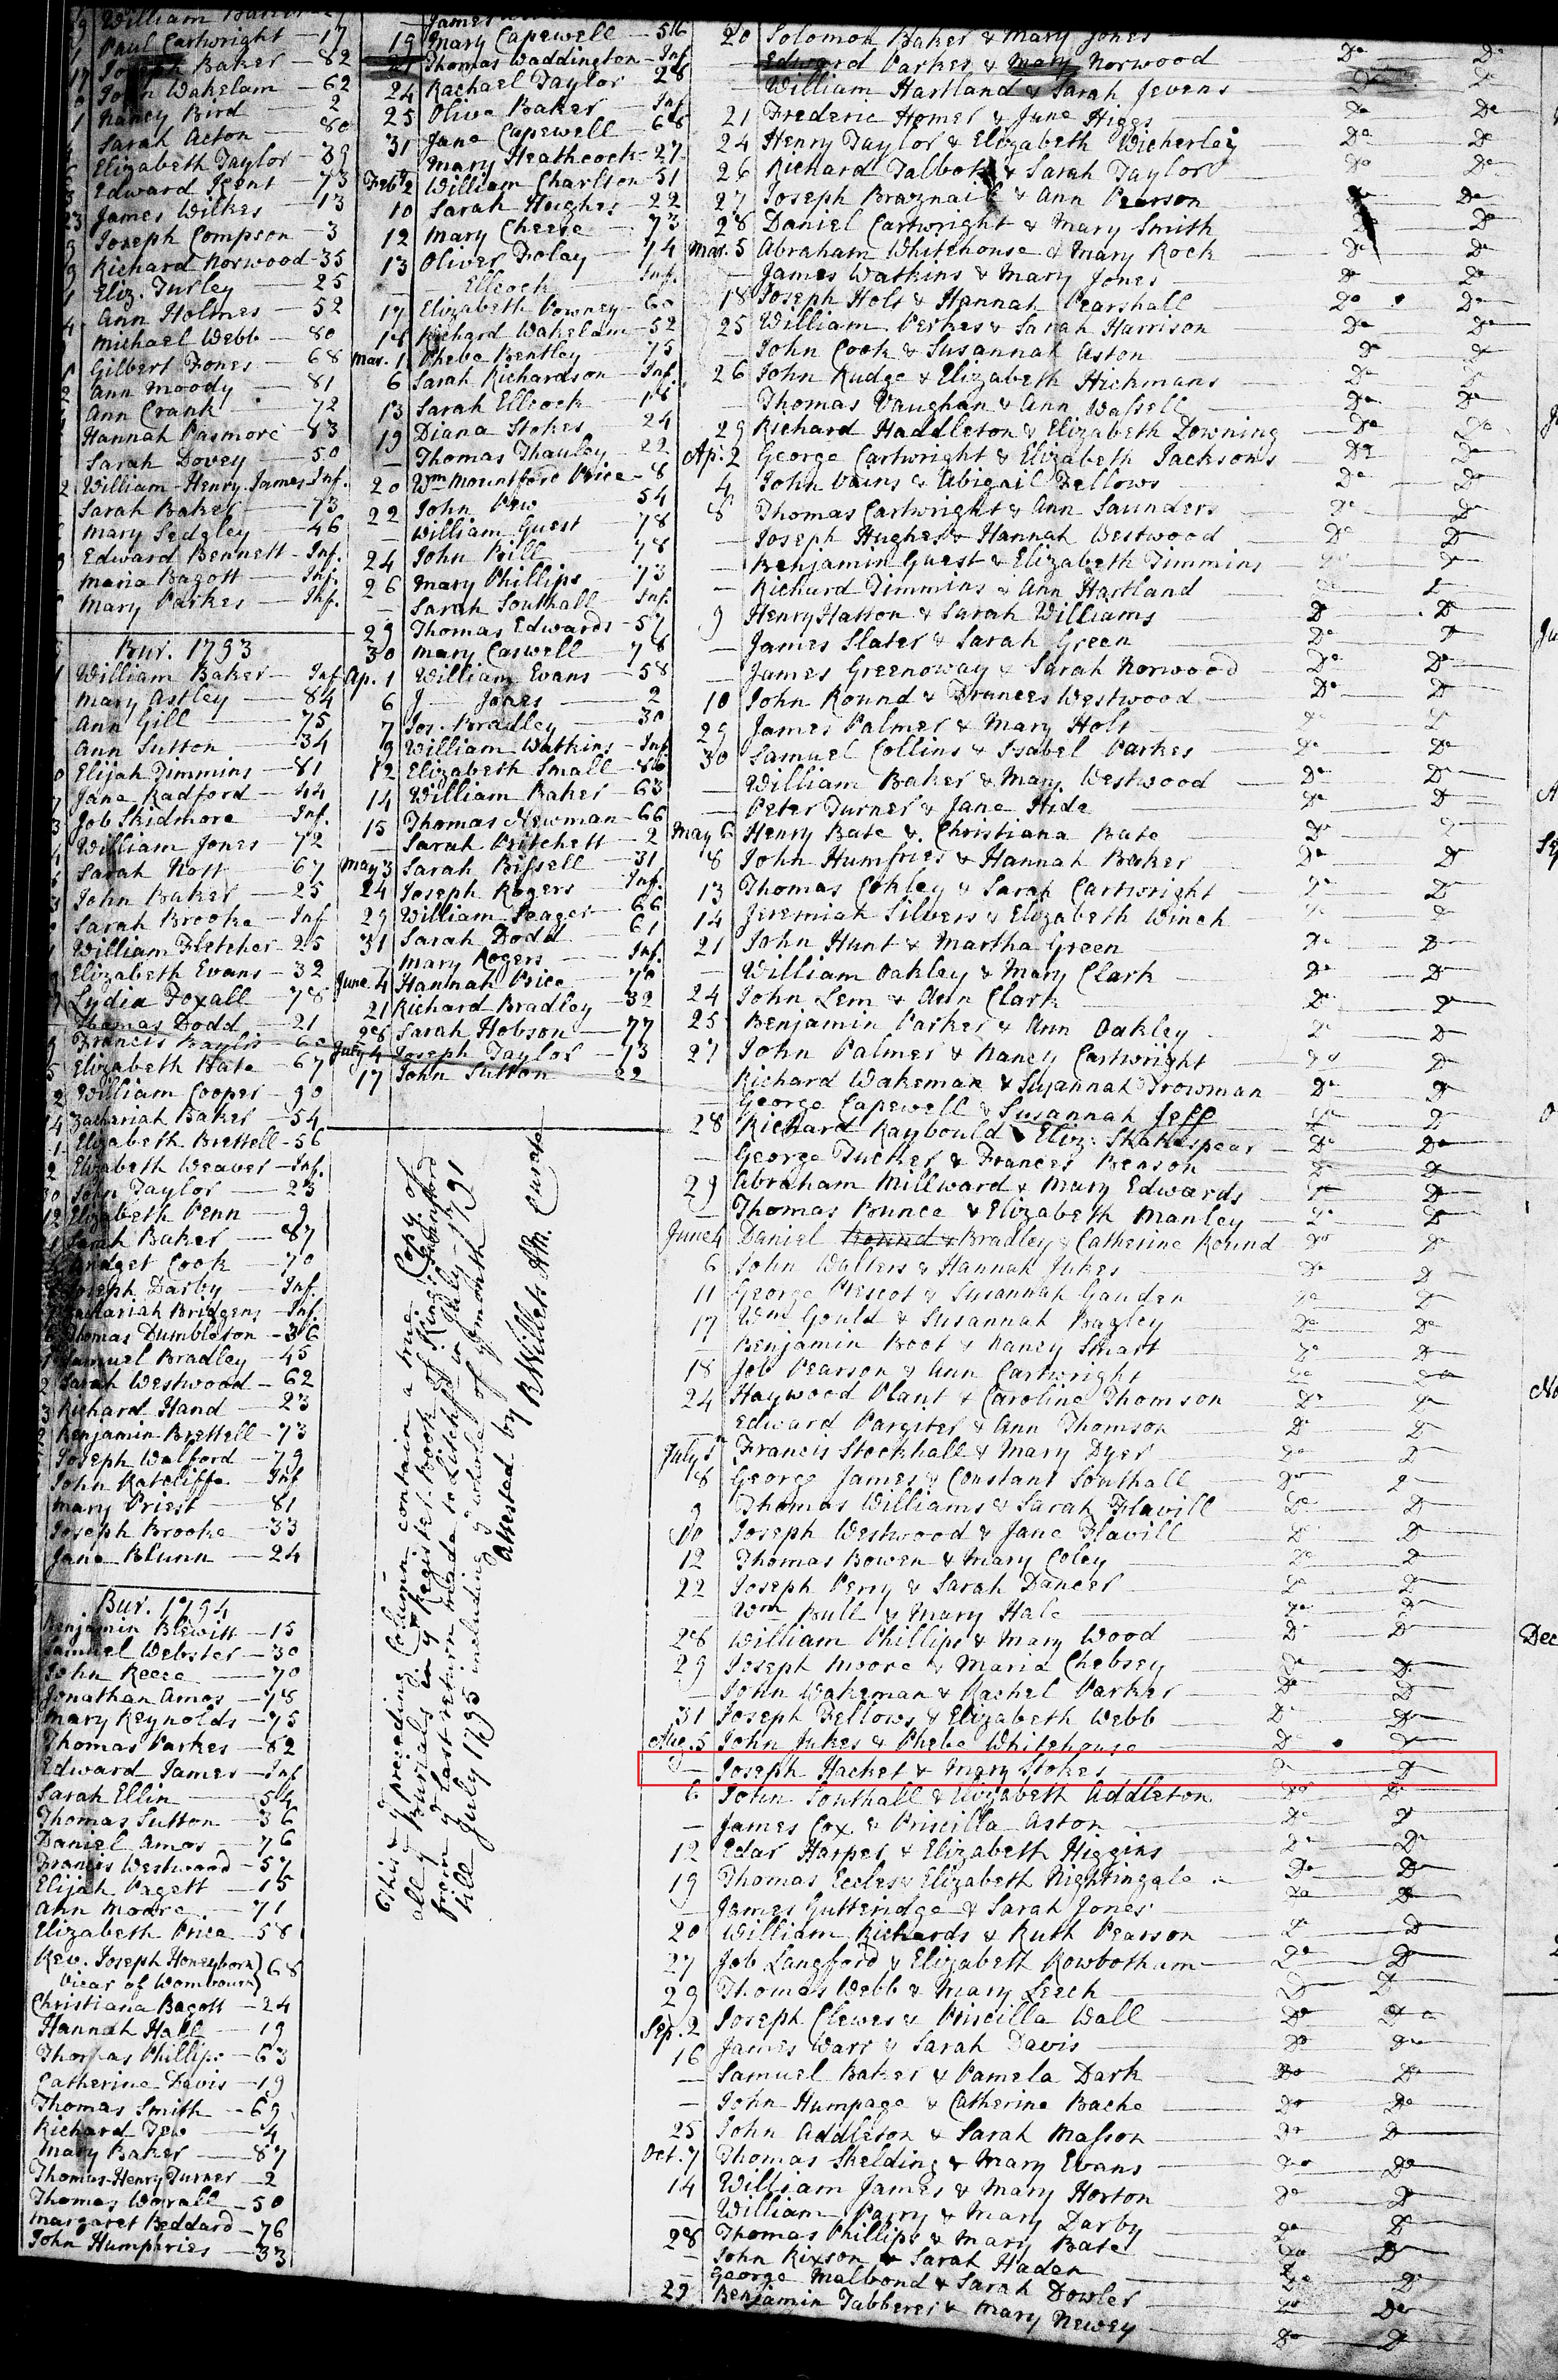 Paul Cartwright - 17
Joseph Baker - 82
John Wakelam - 62
Nancy Bird 2
Sarah Acton - 80
Elizabeth Taylor - 39
Edward Kent - 73
23 James Wilkes - 13
Joseph Compson - 3
Richard Norwood - 35
Eliz. Turley - 25
Ann Holmes - 52
Michael Webb - 80
Gilbert Jones - 68
Ann Moody - 81
Ann Crank - 72
Hannah Pasmore - 83
Sarah Dovey - 50
William Henry James Inf.
Sarah Baker - 73
Mary Sedgley - 46
Edward Bennett - Inf.
Maria Bagott - Inf.
Mary Parkes - Inf.
Bur. 1793
William Baker - Inf
Mary Astley - 84
Ann Gill - 75
Ann Sutton - 34
Elijah Timmins - 81
Jane Radford - 44
Job Skidmore - Inf.
William Jones - 72
Sarah Nott 67
John Baker - 25
Sarah Brooke - Inf
William Fletcher - 25
Elizabeth Evans - 32
Lydia Foxall - 78
Thomas Dodd - 21
Francis Baylis - 60
Elizabeth Bate - 67
William Cooper - 90
14 Zachariah Baker - 54
Elizabeth Brettell - 56
Elizabeth Weaver - Inf.
John Taylor - 23
12 Elizabeth Penn - 9
Sarah Baker - 87
Bridget Cook - 70
Joseph Darby - Inf.
Zachariah Bridgens - Inf.
Thomas Dumbleton - 36
Samuel Bradley - 45
Sarah Westwood - 62
Richard Hand - 23
Benjamin Brettell - 73
Joseph Walford - 79
John Ratcliffe - Inf
Mary Priest - 81
Joseph Brooke - 33
Jane Blunn - 24
Bur. 1794
Benjamin Blewitt - 15
Samuel Webster - 30
John Reece - 70
Jonathan Amos - 78
Mary Reynolds - 75
Thomas Parkes - 82
Edward James - Inf
Sarah Ellin - 54
Thomas Sutton - 36
Daniel Amos - 76
Francis Westwood - 57
Elijah Pagett - 15
Ann Moore - 71
Elizabeth Price - 58
Rev. Joseph Honeyborn } 68
Vicar of Wombourn }
Christiana Bagott - 24
Hannah Hall - 19
Thomas Phillips - 63
Catherine Davis - 19
Thomas Smith - 69
Richard Tew - 4
Mary Baker - 87
Thomas Henry Turner - 2
Thomas Worall - 50
Margaret Beddard - 76
John Humphries - 33
James
19 Mary Capewell - 56
21 Thomas Waddington - Inf
24 Rachael Taylor - 28
25 Olive Baker - Inf
31 Jane Capewell - 68
Mary Heathcock - 27
Feb. 2 William Charlton - 51
10 Sarah Hughes - 22
12 Mary Cheese - 73
13 Oliver Foley - 74
- Ellcock Inf.
17 Elizabeth Powney - 60
18 Richard Wakelam - 52
Mar. 1 Phebe Bentley - 75
6 Sarah Richardson - Inf.
13 Sarah Ellcock - 18
19 Diana Stokes - 24
- Thomas Thauley 22
20 Wm Mountford Price - 8
22 John Pew 54
- William Guest - 78
24 John Bill 78
26 Mary Phillips - 73
- Sarah Southall - Inf.
29 Thomas Edwards - 57
30 Mary Caswell - 78
Ap. 1 William Evans - 58
6 J Jones - 2
7 Jos. Bradley - 30
9 William Watkins - Inf
12 Elizabeth Small - 86
14 William Baker - 63
15 Thomas Newman - 66
- Sarah Pritchett - 2
May 3 Sarah Bissell - 31
24 Joseph Rogers - Inf.
29 William Seager - 66
31 Sarah Dodd - 61
- Mary Rogers - Inf.
June 4 Hannah Price - 70
21 Richard Bradley - 32
28 Sarah Hobson - 77
July 4 Joseph Taylor - 13
17 John Sutton - 22
This & ye preceding Column contain a true Copy of
all ye Burials in ye Register-Book of Kingswinford
from ye last return made to Litchfd in July 1791
till July 1795 including ye whole of ye month
Attested by R Willets AB. Curate
20 Solomon Baker & Mary Jones
- Edward Parker & Mary Norwood Do Do
- William Hartland & Sarah Jevens Do Do
21 Frederic Homer & June Higgs Do Do
24 Henry Taylor & Elizabeth Wicherley Do Do
26 Richard Talbot & Sarah Taylor Do Do
27 Joseph Braznail & Ann Pearson Do Do
28 Daniel Cartwright & Mary Smith Do Do
Mar. 5 Abraham Whitehouse & Mary Rock Do Do
- James Watkins & Mary Jones Do Do
18 Joseph Holt & Hannah Pearshall Do Do
25 William Perkes & Sarah Harrison Do Do
- John Cook & Susannah Aston Do Do
26 John Rudge & Elizabeth Hickmans Do Do
- Thomas Vaughan & Ann Wassell Do Do
29 Richard Haddleton & Elizabeth Downing Do Do
Ap. 2 George Cartwright & Elizabeth Jacksons Do Do
4 John Vains & Abigail Fellows Do Do
8 Thomas Cartwright & Ann Saunders Do Do
- Joseph Hughes & Hannah Westwood Do Do
- Benjamin Guest & Elizabeth Timmins Do Do
- Richard Timmins & Ann Hartland Do Do
9 Henry Hatton & Sarah Williams Do Do
- James Slater & Sarah Green Do Do
- James Greenoway & Sarah Norwood Do Do
10 John Round & Frances Westwood Do Do
29 James Palmer & Mary Holt Do Do
30 Samuel Collins & Isabel Parkes Do Do
- William Baker & Mary Westwood Do Do
- Peter Turner & Jane Hide Do Do
May 6 Henry Bate & Christiana Bate Do Do
8 John Humfries & Hannah Baker Do Do
13 Thomas Cokley & Sarah Cartwright Do Do
14 Jeremiah Silvers & Elizabeth Winch Do Do
21 John Hunt & Martha Green Do Do
- William Oakley & Mary Clark Do Do
24 John Lem & Ann Clark Do Do
25 Benjamin Parker & Ann Oakley Do Do
27 John Palmer & Nancy Cartwright Do Do
- Richard Wakeman & Susannah Trowman Do Do
- George Capewell & Susannah Jeff Do Do
28 Richard Raybould & Eliz. Shakespear Do Do
- George Tucker & Frances Benson Do Do
29 Abraham Millward & Mary Edwards Do Do
- Thomas Bunce & Elizabeth Manley Do Do
June 4 Daniel Round & Bradley & Catherine Round Do Do
6 John Walters & Hannah Jukes Do Do
11 George Prescot & Susannah Gauden Do Do
17 Wm Gould & Susannah Bagley Do Do
- Benjamin Boot & Nancy Smart Do Do
18 Job Pearson & Ann Cartwright Do Do
24 Haywood Plant & Caroline Thomson Do Do
- Edward Pargeter & Ann Thomson Do Do
July 1 Francis Stockhall & Mary Dyer Do Do
8 George James & Constant Southall Do Do
9 Thomas Williams & Sarah Flavill Do Do
10 Joseph Westwood & Jane Flavill Do Do
12 Thomas Bowen & Mary Coley Do Do
22 Joseph Perry & Sarah Dancer Do Do
- Wm Bull & Mary Hale Do Do
28 William Phillips & Mary Wood Do Do
29 Joseph Moore & Maria Chebsey Do Do
- John Wakeman & Rachel Parker Do Do
31 Joseph Fellows & Elizabeth Webb Do Do
Aug. 5 John Jukes & Phebe Whitehouse Do Do
- Joseph Hacket & Mary Stokes Do Do
6 John Southall & Elizabeth Addleton Do Do
- James Cox & Priscilla Aston Do Do
12 Edar Harper & Elizabeth Higgins Do Do
19 Thomas Eccles & Elizabeth Nightingale Do Do
- James Gutteridge & Sarah Jones Do Do
20 William Richards & Ruth Pearson Do Do
27 Job Langford & Elizabeth Rowbotham Do Do
29 Thomas Webb & Mary Leech Do Do
Sep. 2 Joseph Clewes & Priscilla Wall Do Do
16 James Warr & Sarah Davis Do Do
- Samuel Baker & Pamela Dark Do Do
- John Humpage & Catherine Bache Do Do
25 John Addleton & Sarah Masson Do Do
Oct. 7 Thomas Skelding & Mary Evans Do Do
14 William James & Mary Horton Do Do
- William Parry & Mary Darby Do Do
28 Thomas Phillips & Mary Bate Do Do
- John Rixson & Sarah Haden Do Do
- George Malbond & Sarah Dowler Do Do
29 Benjamin Tabberer & Mary Newey Do Do
Dec